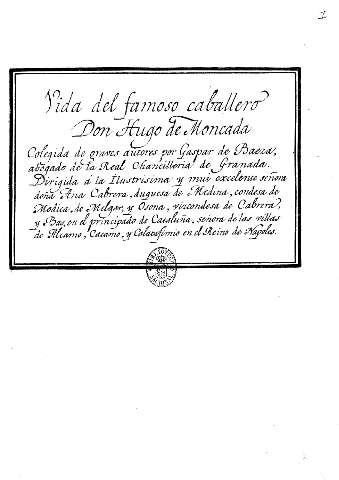 1
Vida del famoso caballero
Don Hugo de Moncada
Colegida de graves autores por Gaspar de Baeza,
abogado de la Real Chancilleria de Granada.
Dirigida á la Ilustrisima y mui excelente señora
doña Ana Cabrera, duquesa de Medina, condesa de
Modica, de Melgar, y Osona, vizcondesa de Cabrera,
y Bas, en el principado de Cataluña, señora de las villas
de Alcamo, Cacamo, y Calatafimio en el Reino de Napoles.